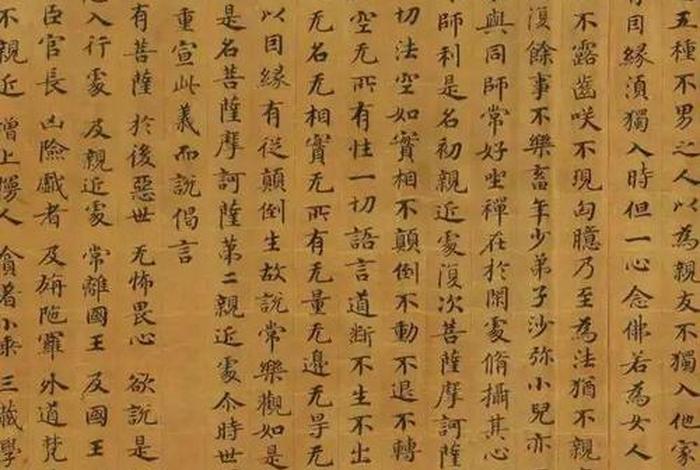 五種不男之人以為親友不獨入他家
有因緣須獨入時但一心念佛若為女人
不露齒咲不現匈臆乃至為法猶不親
復餘事不樂畜年少弟子沙弥小兒亦
與同師常好坐禪在於閑處脩攝其心
師利是名初親近處復次菩薩摩訶薩
切法空如實相不顛倒不動不退不轉
空无所有性一切語言道斷不生不出
无名无相實无所有无量无邊无㝵无
以因緣有從顛倒生故說常樂觀如是
是名菩薩摩訶薩第二親近處尒時世
重宣此義而說偈言
有菩薩 於後惡世 无怖畏心 欲說是
入行處 及親近處 常離國王 及國王
臣官長 凶險戲者 及旃陁羅 外道梵
不親近 增上慢人 貪著小乘 三藏學